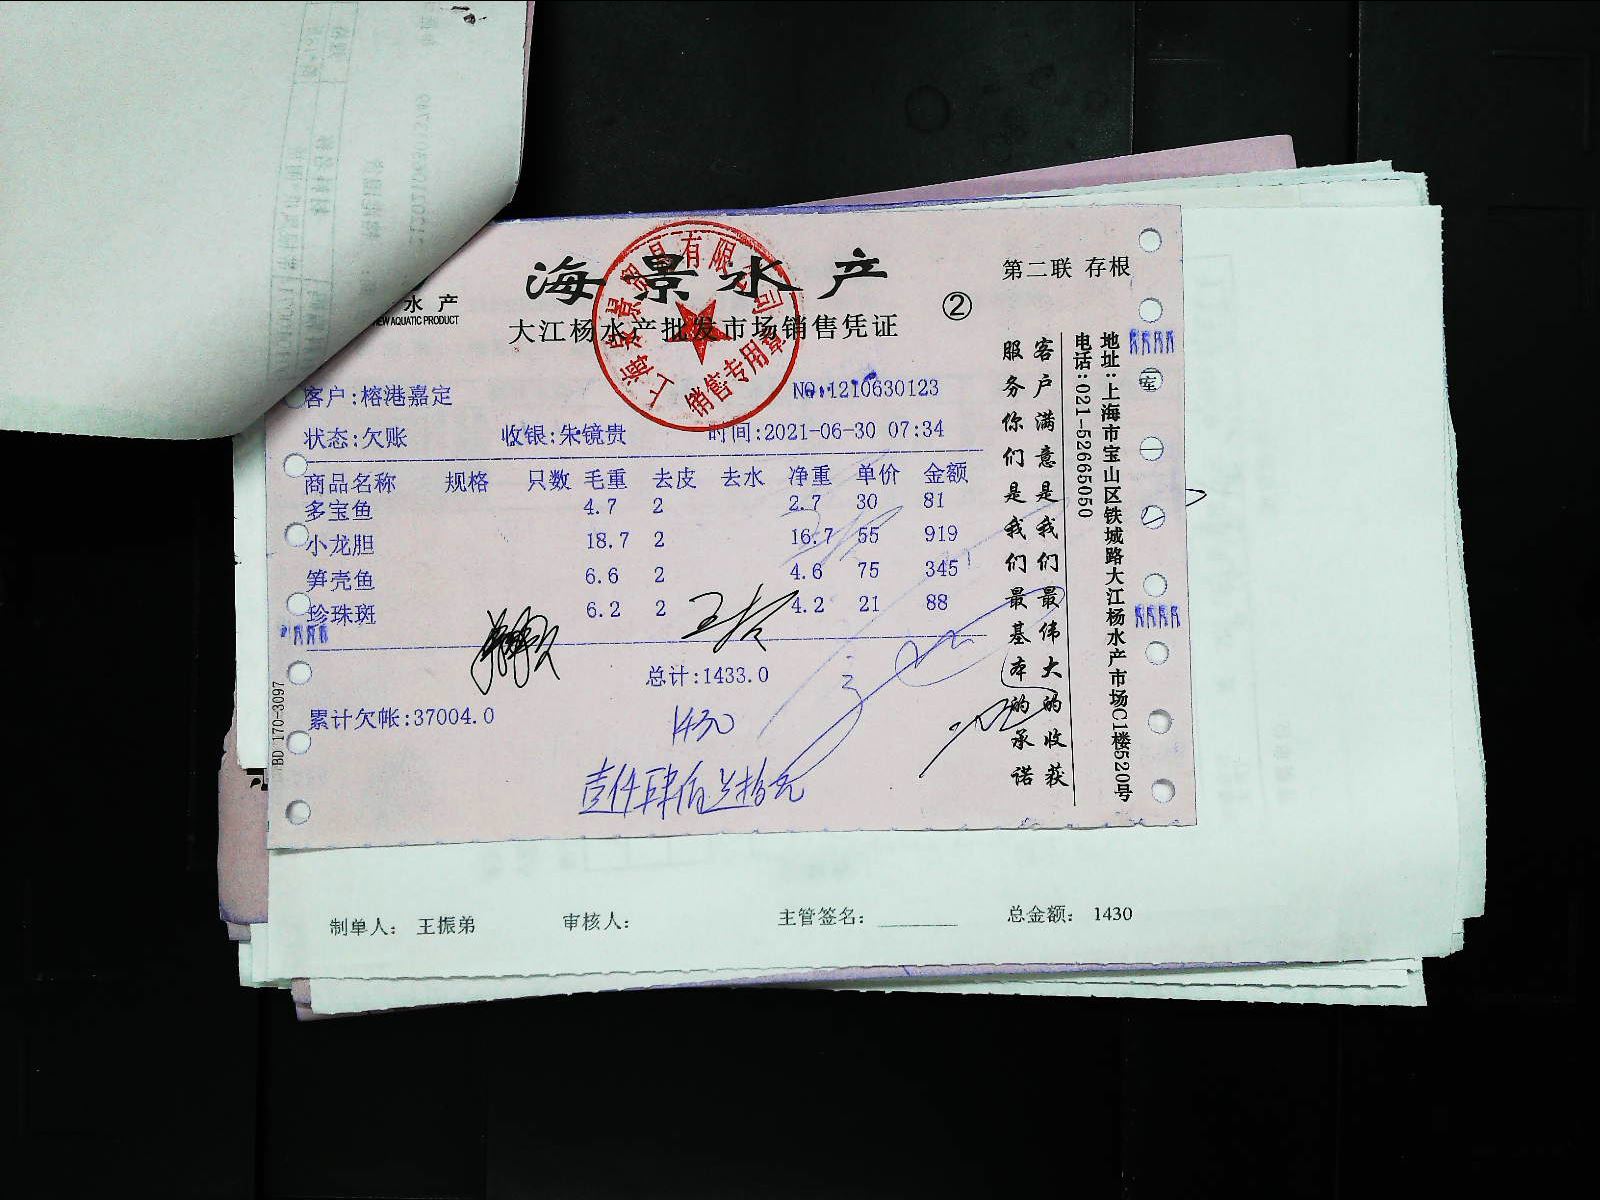 海景水产
水产
EW AQUATIC PRODUCT
大江杨水产批发市场销售凭证
②
第二联 存根
客户:榕港嘉定
NO:1210630123
状态:欠账 收银:朱镜贵 时间:2021-06-30 07:34
商品名称 规格 只数 毛重 去皮 去水 净重 单价 金额
多宝鱼 4.7 2 2.7 30 81
小龙胆 18.7 2 16.7 55 919
笋壳鱼 6.6 2 4.6 75 345
珍珠斑 6.2 2 4.2 21 88
总计:1433.0
累计欠帐:37004.0
1430
壹仟肆佰叁拾元
BD 170-3097
客户满意是我们最伟大的收获
服务你们是我们最基本的承诺
地址:上海市宝山区铁城路大江杨水产市场C1楼520号
电话:021-52665050
销售专用章
制单人: 王振弟 审核人: 主管签名: 总金额: 1430